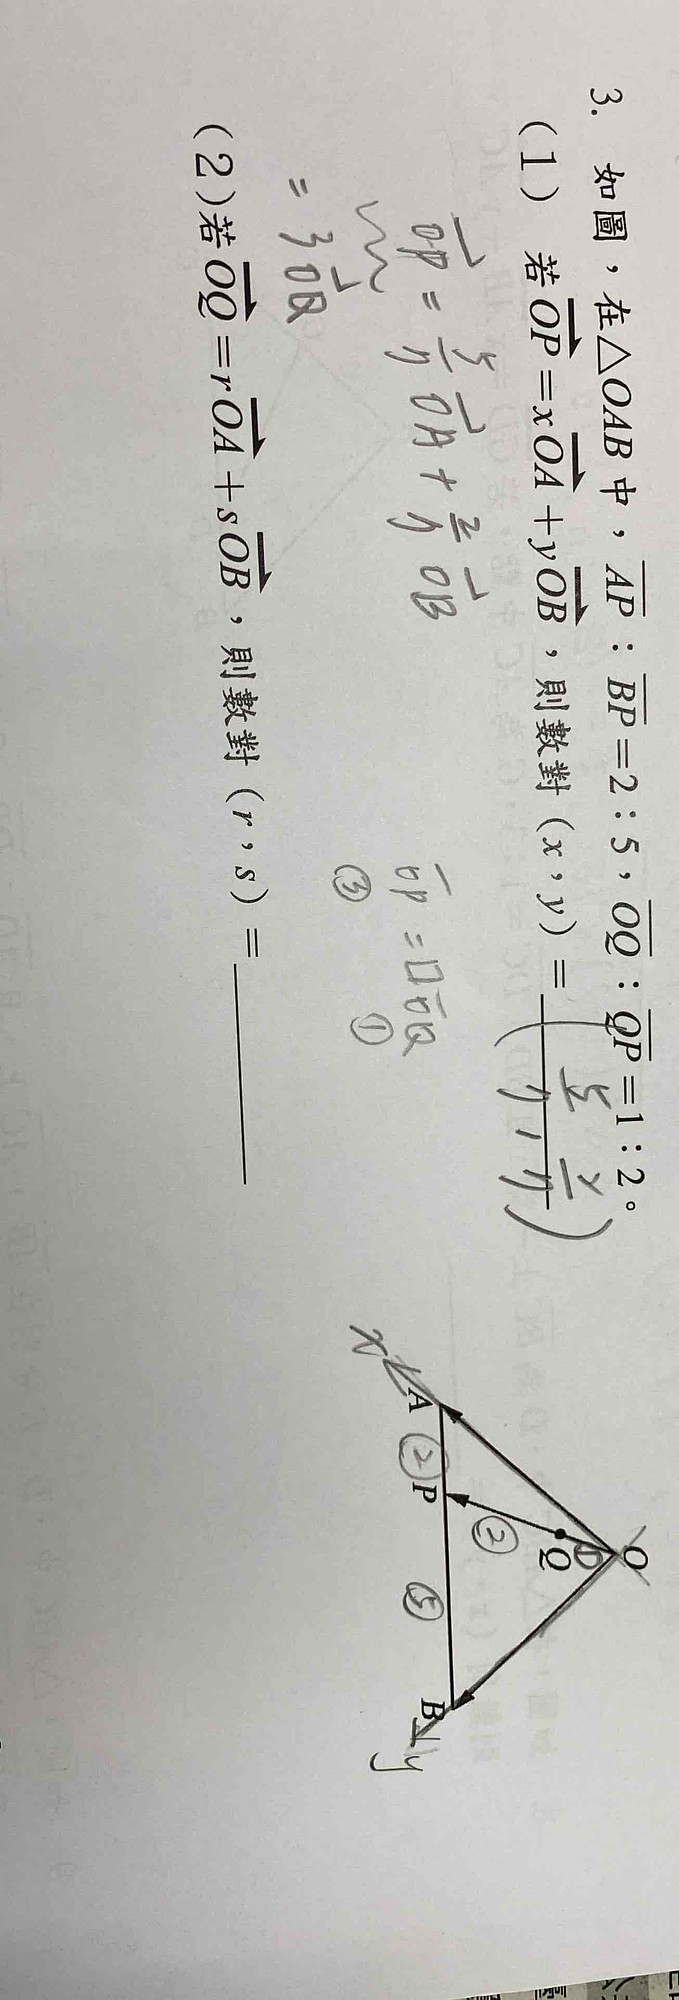 3. 如圖，在△OAB中，AP：BP=2：5，OQ：QP=1：2。
(1) 若OP=xOA+yOB，則數對(x，y)=(5/7, 2/7)
OP = 5/7 OA + 2/7 OB
= 3 OQ
OP = □ OQ
③ ①
(2)若OQ=rOA+sOB，則數對(r，s)=
O
Q
②
A
②
P
⑤
B
x
y